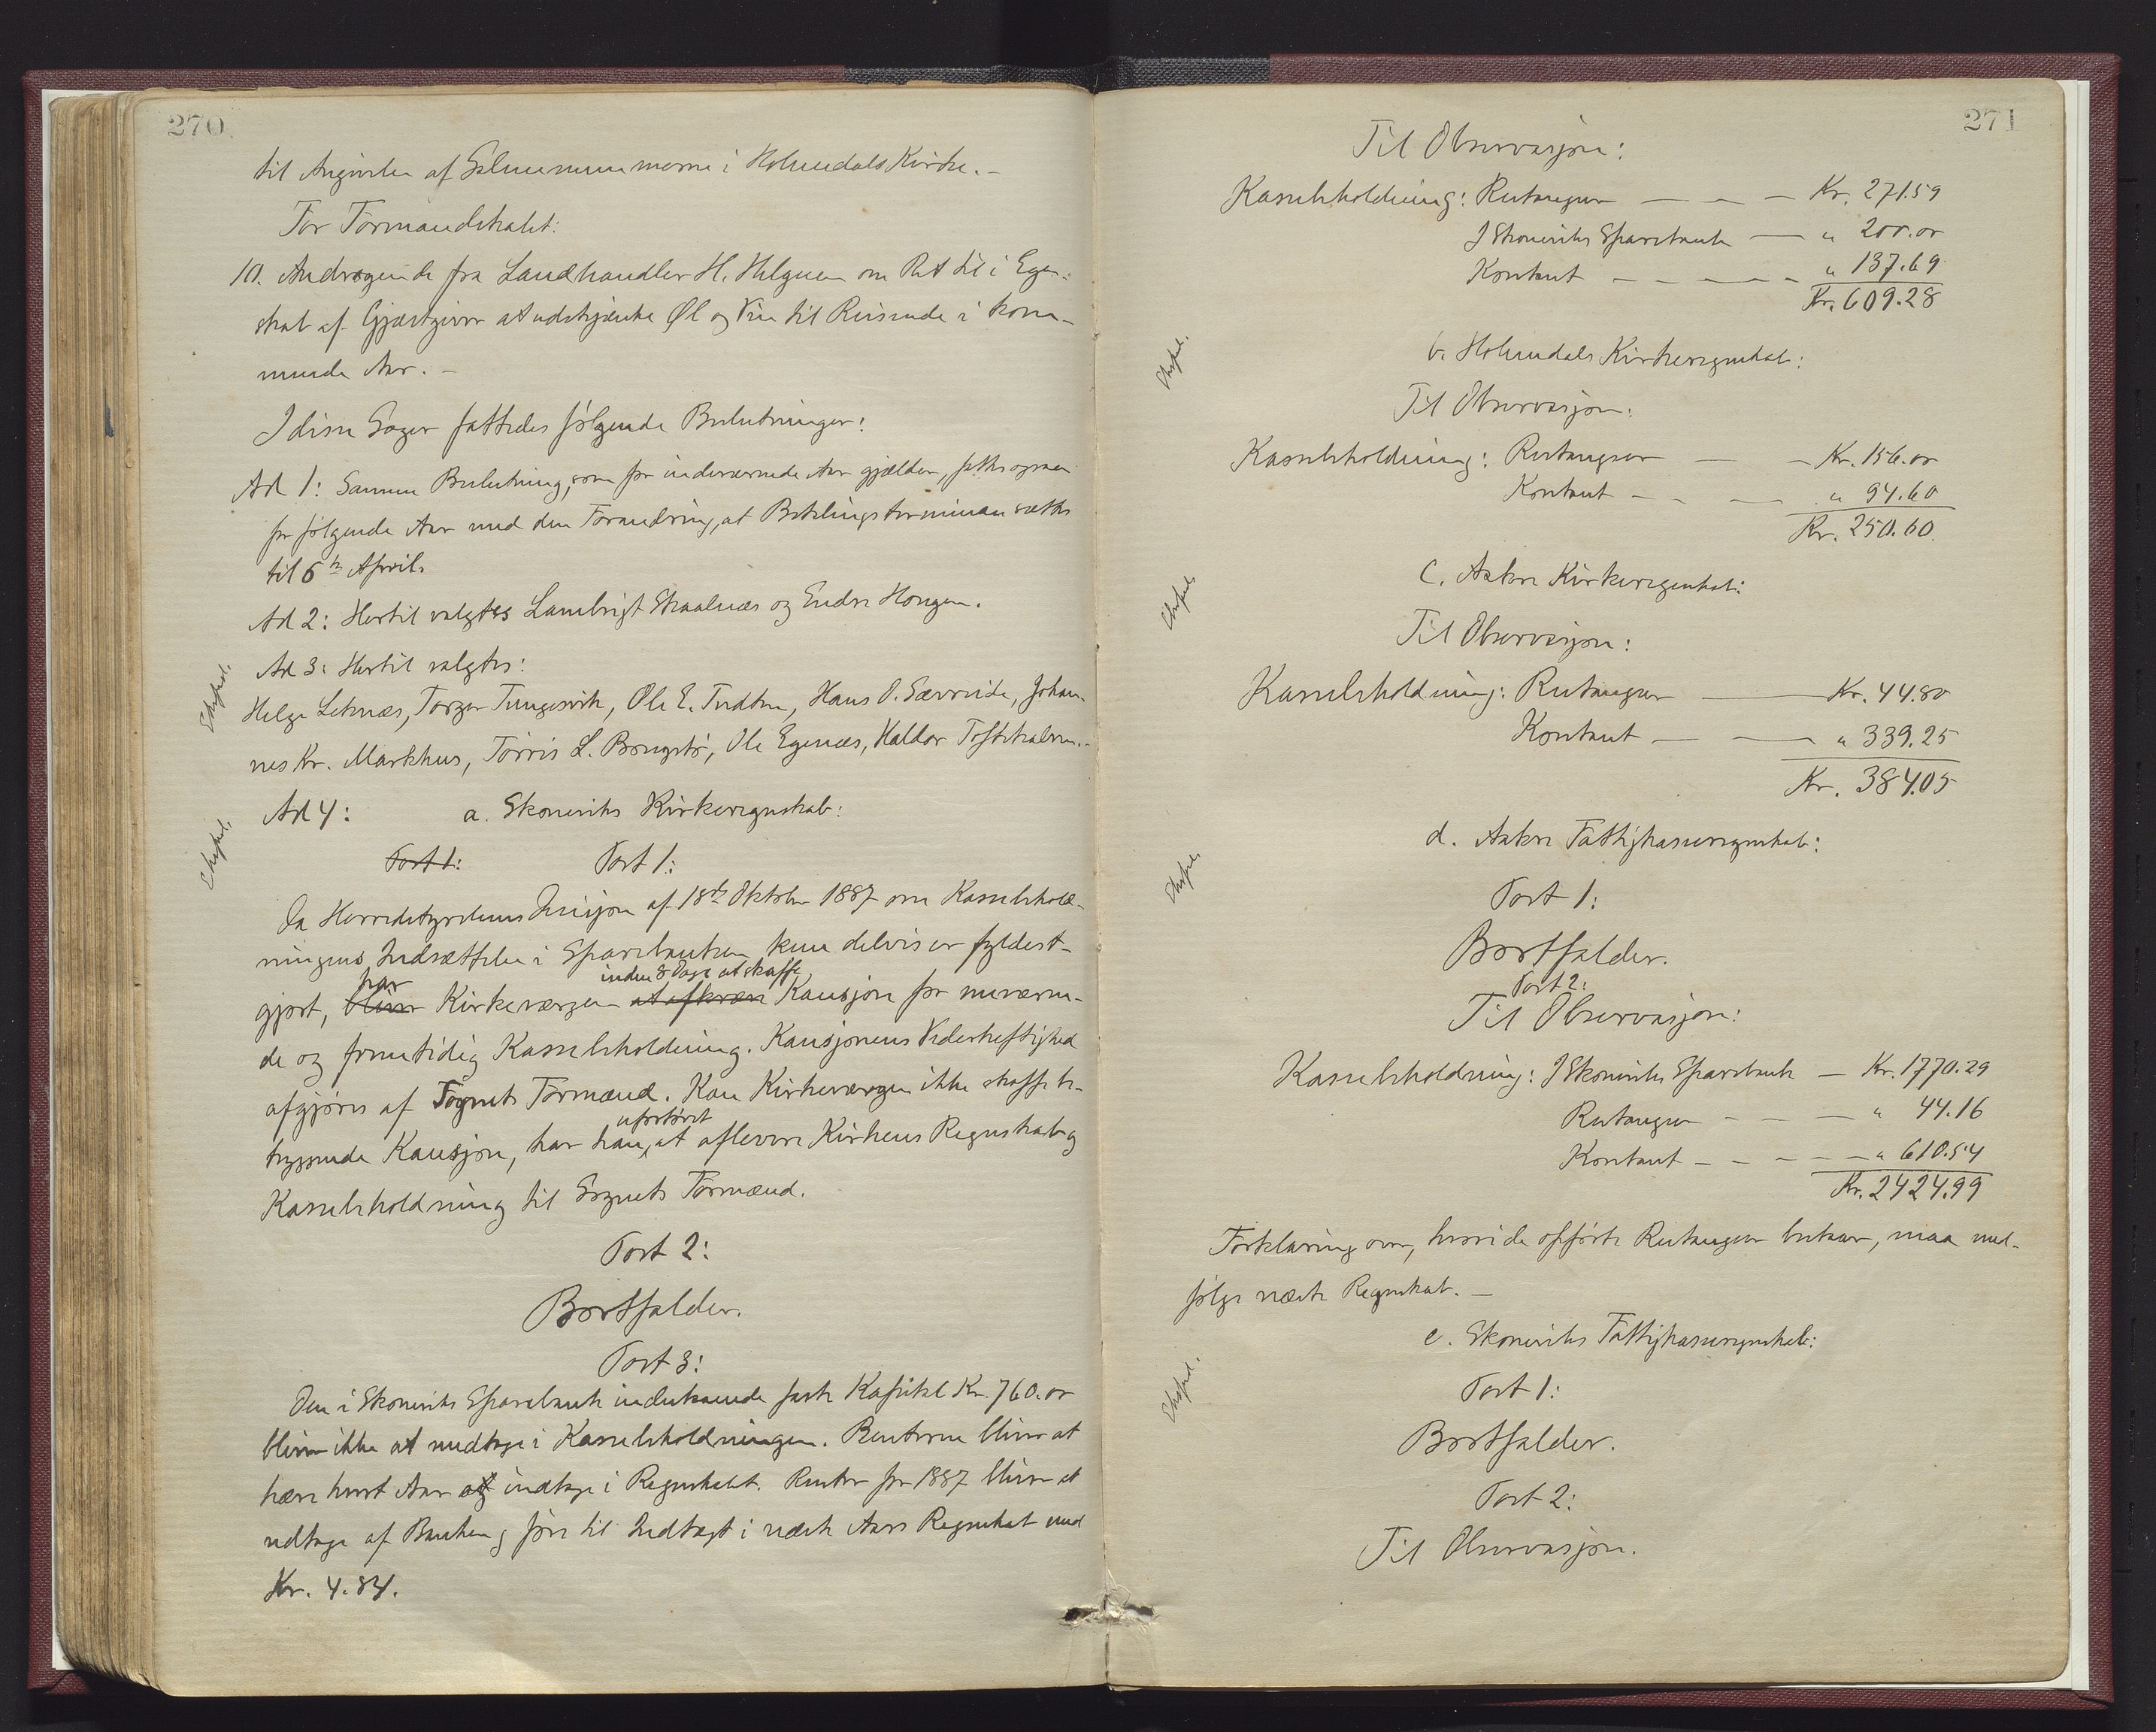 270
til Angivelse af Salmenummerne i Holmedals Kirke. -
For Formandskabet:
10. Andragende fra Landhandler H. Helgesen om Ret til i Egen-
skab af Gjæstgiver at udskjænke Øl og Vin til Reisende i kom-
mende Aar. -
I disse Sager fattedes følgende Beslutninger:
Ad 1: Samme Beslutning, som for indeværende Aar gjælder, fattes ogsaa
for følgende Aar med den Forandring, at Betalingsterminen sættes
til 6te April.
Ad 2: Hertil valgtes Lambrigt Skaalnæs og Endre Hougen.
Ad 3: Hertil valgtes:
Eksped.
Helge Leknæs, Torger Tungesvik, Ole E. Tvedten, Hans O. Sævreide, Johan-
nes Kr. Markhus, Tørris L. Bringetø, Ole Egenæs, Haldor Toftekalven. -
Ad 4: a. Skonviks Kirkeregnskab:
Eksped.
Post 1: Post 1:
Da Herredstyrelsens Desisjon af 18de Oktober 1887 om Kassebehold-
ningens Indsættelse i Sparebanken kun delvis er fyldest-
har inden 8 Dage at skaffe
gjort, bliver Kirkeværgen at afkræve Kausjon for nuværen-
de og fremtidig Kassebeholdning. Kausjonens Vederheftighed
afgjøres af Sognets Formænd. Kan Kirkeværgen ikke skaffe be-
ufortøvet
tryggende Kausjon, har han, at aflevere Kirkens Regnskab og
Kassebeholdning til Sognets Formænd.
Post 2:
Bortfalder.
Post 3:
Den i Skoneviks Sparebank indestaaende faste Kapital Kr. 760.00
bliver ikke at medtage i Kassebeholdningen. Renterne bliver at
hæve hvert Aar og indtage i Regnskabet. Renter for 1887 bliver at
udtage af Banken og føre til Indtægt i næste Aars Regnskab med
Kr. 4.84.
271
Til Observasjon:
Kassebeholdning: Restanser — — — Kr. 271.59
I Skoneviks Sparebank — " 200.00
Kontant — — — — — " 137.69
Kr. 609.28
Eksped.
b. Holmedals Kirkeregnskab:
Til Observasjon:
Kassebeholdning: Restanser — — Kr. 156.00
Kontant — — — " 94.60
Kr. 250.60.
Eksped.
c. Aakre Kirkeregnskab:
Til Observasjon:
Kassebeholdning: Restanser — Kr. 44.80
Kontant — — " 339.25
Kr. 384.05
d. Aakre Fattigkasseregnskab:
Eksped.
Post 1:
Bortfalder.
Post 2:
Til Observasjon:
Kassebeholdning: I Skoneviks Sparebank — Kr. 1770.29
Restanser — — — " 44.16
Kontant — — — — — " 610.54
Kr. 2424.99
Forklaring over, hvori de opførte Restanser bestaar, maa med-
følge næste Regnskab. —
e. Skoneviks Fattigkasseregnskab:
Eksped.
Post 1:
Bortfalder.
Post 2:
Til Observasjon.